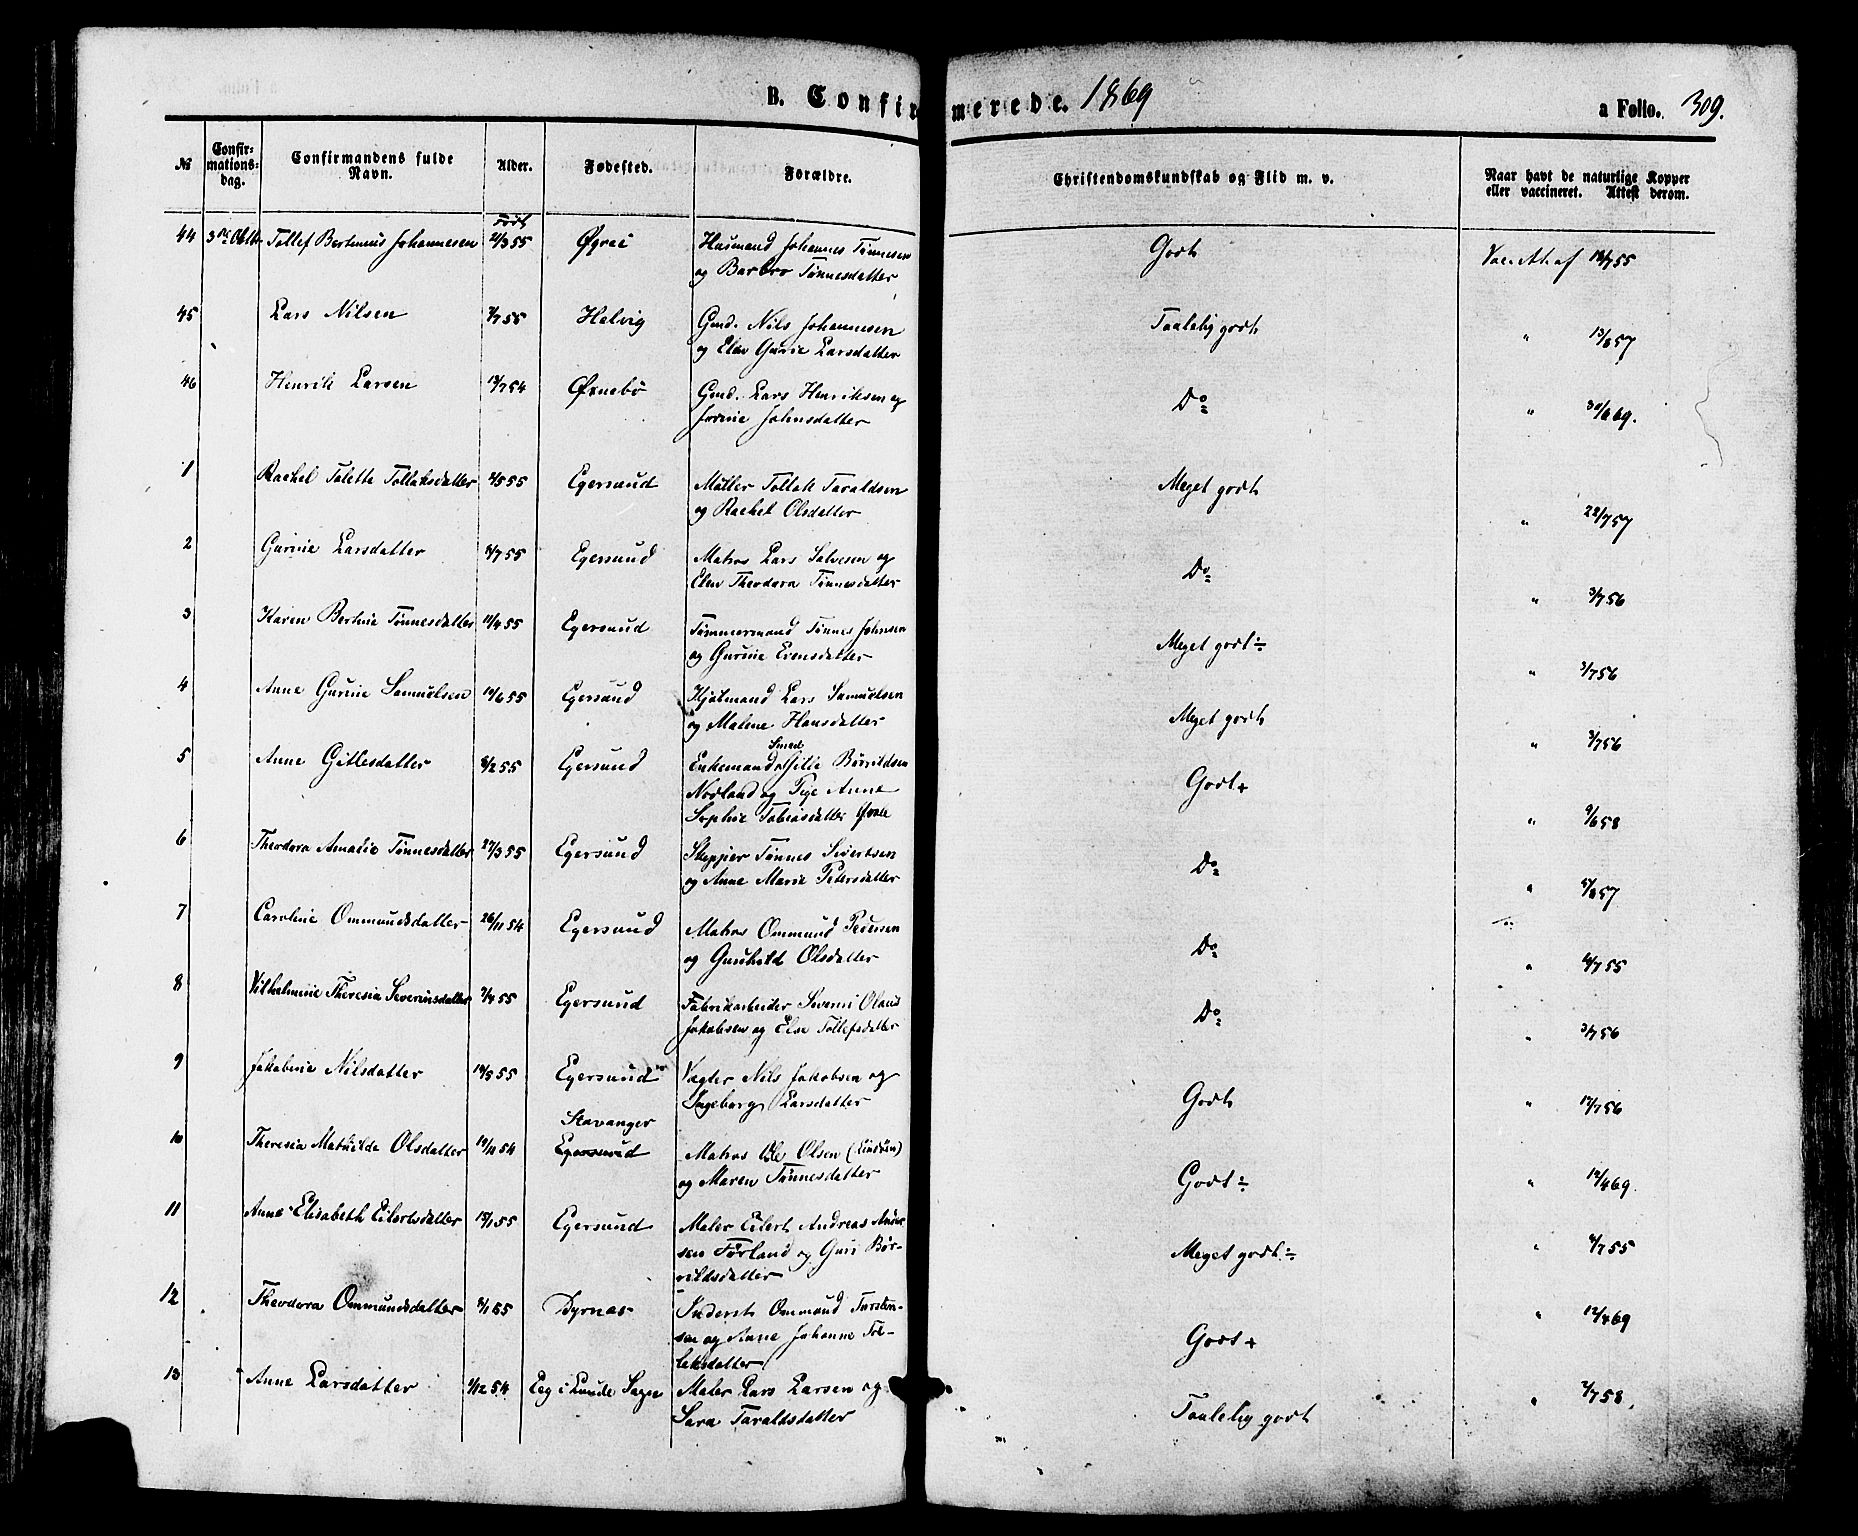 B. Confirmerede. 1869
a Folio. 309.
№
Confir-
mations-
dag.
Confirmandens fulde
Navn.
Alder.
Fødested.
Forældre.
Christendomskundskab og Flid m. v.
Naar havt de naturlige Kopper
eller vaccineret. Attest derom.
født
44 Tollef Bertinius Johannesen 21/3 55 Øgrei Husmand Johannes Tønnesen Godt 18/7 55
og Barbro Tønnesdatter
45 Lars Nilsen 55 Helvig Gmd. Nils Johannesen Taalelig godt " 13/6 57
og Elen Gurie Larsdatter
46 Henrik Larsen 19/7 54 Øxnebø Gmd. Lars Henriksen og Do " 30/6 69.
Jorine Johnsdatter
1 Rachel Talette Tollaksdatter 55 Egersund Møller Tollak Taraldsen Meget godt " 22/7 57
og Rachel Olsdatter
2 Gurine Larsdatter 55 Egersund Matros Lars Salvesen og Do " 3/7 56
Elen Theodora Tønnesdatter
3 Karen Bertine Tønnesdatter 11/4 55 Egersund Tømmermand Tønnes Johnsen Meget godt ÷ " 3/7 56
og Gurine Evensdatter
4 Anne Gurine Samuelsen 19/6 55 Egersund Lars Samuelsen Meget godt " 3/7 56
og Malene Hansdatter
5 Anne Gitlesdatter 8/2 55 Egersund Enkemand Smed Gitle Børrildsen Godt + " 9/6 58
Nodland og Pige Anne
Sophie Tobiasdatter
6 Theodora Amalie Tønnesdatter 27/3 55 Egersund Skipper Tønnes Sivertsen Do " 57
og Anne Marie Petersdatter
7 Caroline Ommundsdatter 26/11 54 Egersund Matros Ommund Pedersen Do " 55
og Gunhild Olsdatter
8 Vilhelmine Theresia Severinsdatter 7/4 55 Egersund Fabrikarbeider Severin Olaus Do " 3/7 56
Jakobsen og Else Tollefsdatter
9 Jakobine Nilsdatter 19/5 55 Egersund Vægter Nils Jakobsen og Godt " 17/7 56
Ingeborg Larsdatter
Stavanger
10 Theresia Mathilde Olsdatter 19/11 54 Egersund Matros Ole Olsen Godt ÷ " 12/4 69.
og Maren Tønnesdatter
11 Anne Elisabeth Eilertsdatter 15/1 55 Egersund Maler Eilert Andreas Ander- Meget godt ÷ " 55
sen Førland og Guri Bør-
rildsdatter
12 Theodora Ommundsdatter 8/1 55 Dyrnæs Inderst Ommund Torsten- Godt + " 12/4 69
sen og Anne Johanne Tol-
leksdatter
13 Anne Larsdatter 1/12 54 Eeg i Lunde Sogn Maler Lars Larsen og Taalelig godt " 2/7 58.
Sara Taraldsdatter